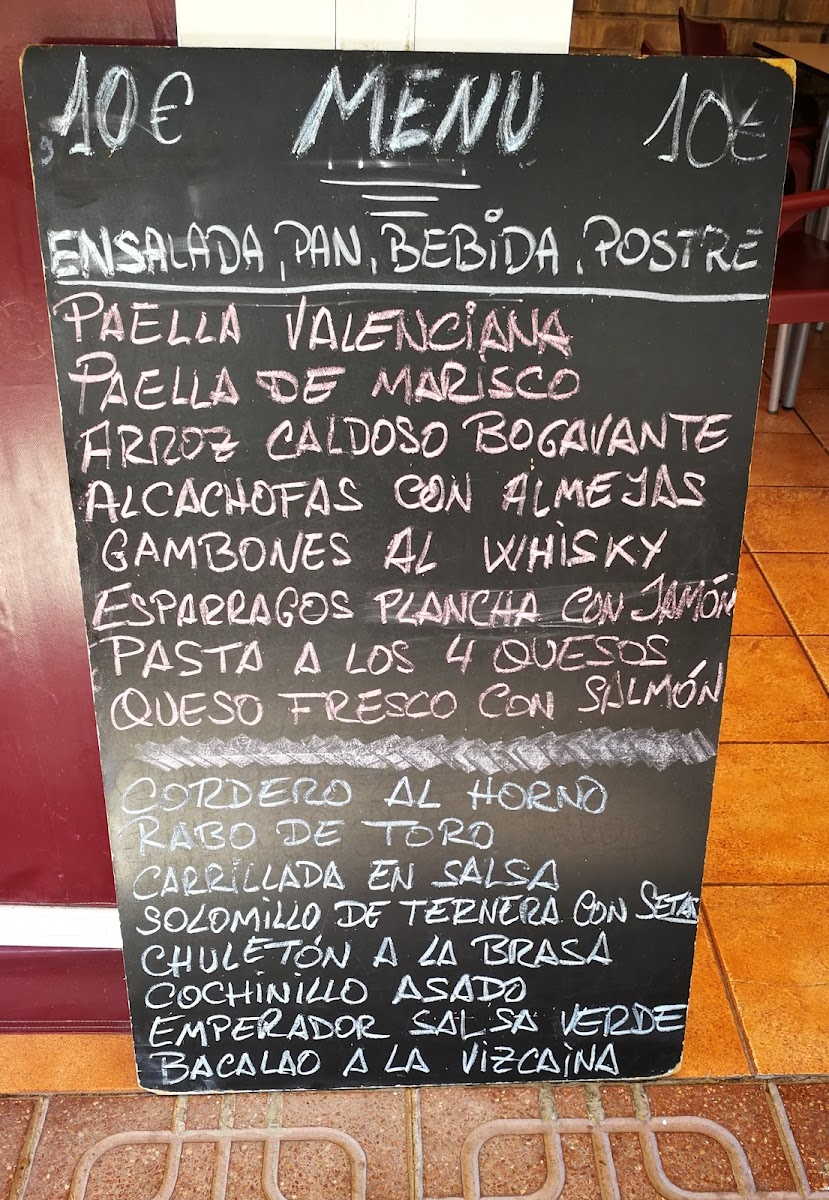 10€ MENU 10€
ENSALADA, PAN, BEBIDA, POSTRE
PAELLA VALENCIANA
PAELLA DE MARISCO
ARROZ CALDOSO BOGAVANTE
ALCACHOFAS CON ALMEJAS
GAMBONES AL WHISKY
ESPARRAGOS PLANCHA CON JAMÓN
PASTA A LOS 4 QUESOS
QUESO FRESCO CON SALMÓN
CORDERO AL HORNO
RABO DE TORO
CARRILLADA EN SALSA
SOLOMILLO DE TERNERA CON SETAS
CHULETÓN A LA BRASA
COCHINILLO ASADO
EMPERADOR SALSA VERDE
BACALAO A LA VIZCAINA